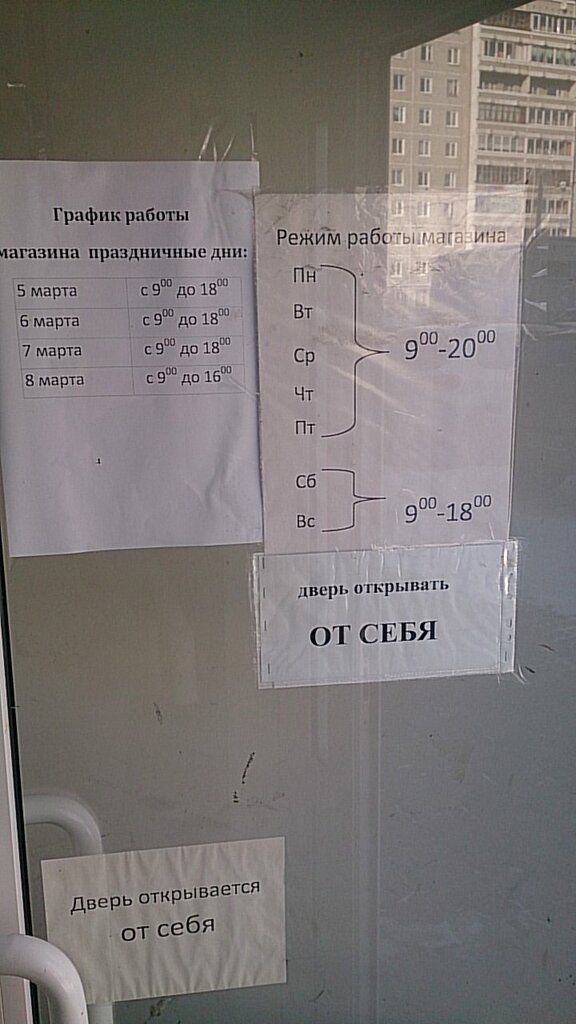 График работы
магазина праздничные дни:
5 марта с 9⁰⁰ до 18⁰⁰
6 марта с 9⁰⁰ до 18⁰⁰
7 марта с 9⁰⁰ до 18⁰⁰
8 марта с 9⁰⁰ до 16⁰⁰
Режим работы магазина
Пн
Вт
Ср
Чт
Пт
9⁰⁰-20⁰⁰
Сб
Вс
9⁰⁰-18⁰⁰
дверь открывать
ОТ СЕБЯ
Дверь открывается
от себя